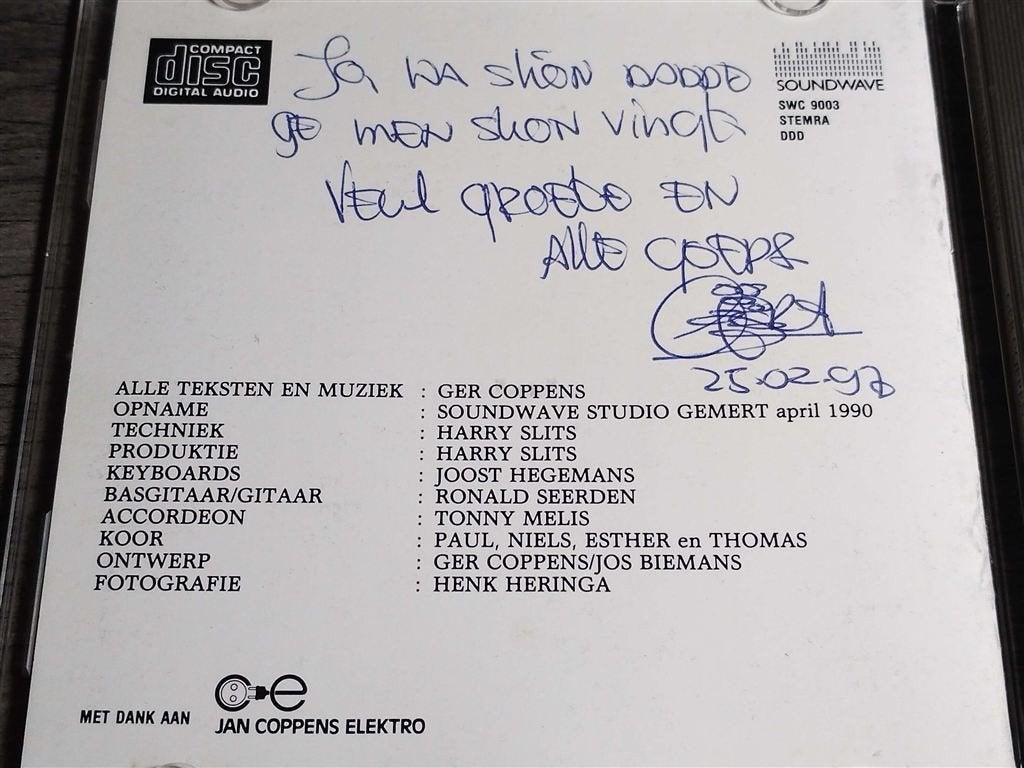 COMPACT
disc
DIGITAL AUDIO
SOUNDWAVE
SWC 9003
STEMRA
DDD
Ja, WA SHON DODDE
ge men shon vingt
Veul groete EN
Alle goeps
25.02.97
ALLE TEKSTEN EN MUZIEK : GER COPPENS
OPNAME : SOUNDWAVE STUDIO GEMERT april 1990
TECHNIEK : HARRY SLITS
PRODUKTIE : HARRY SLITS
KEYBOARDS : JOOST HEGEMANS
BASGITAAR/GITAAR : RONALD SEERDEN
ACCORDEON : TONNY MELIS
KOOR : PAUL, NIELS, ESTHER en THOMAS
ONTWERP : GER COPPENS/JOS BIEMANS
FOTOGRAFIE : HENK HERINGA
MET DANK AAN
JAN COPPENS ELEKTRO